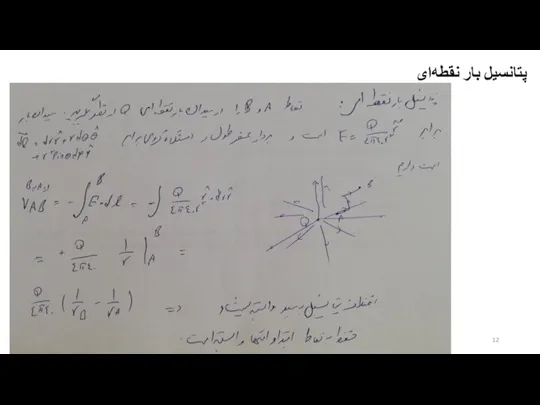 پتانسیل بار نقطه‌ای
پتانسیل بار نقطه ای : نقاط A و B را در میدان بار نقطه ای Q در نظر بگیرید. میدان بار
برابر E = Q/4πε₀r² r̂ است و بردار عنصر طول در
dl = dr r̂ + r dθ θ̂
+ r sinθ dφ φ̂
است داریم
V_AB = -∫_A^B E·dl = -∫ Q/4πε₀r² r̂·dr r̂
= + Q/4πε₀ 1/r |_A^B =
Q/4πε₀ (1/r_B - 1/r_A) =>
اختلاف پتانسیل به مسیر وابسته نیست و
فقط به نقاط ابتدا و انتها وابسته است.
Q
A
B
12